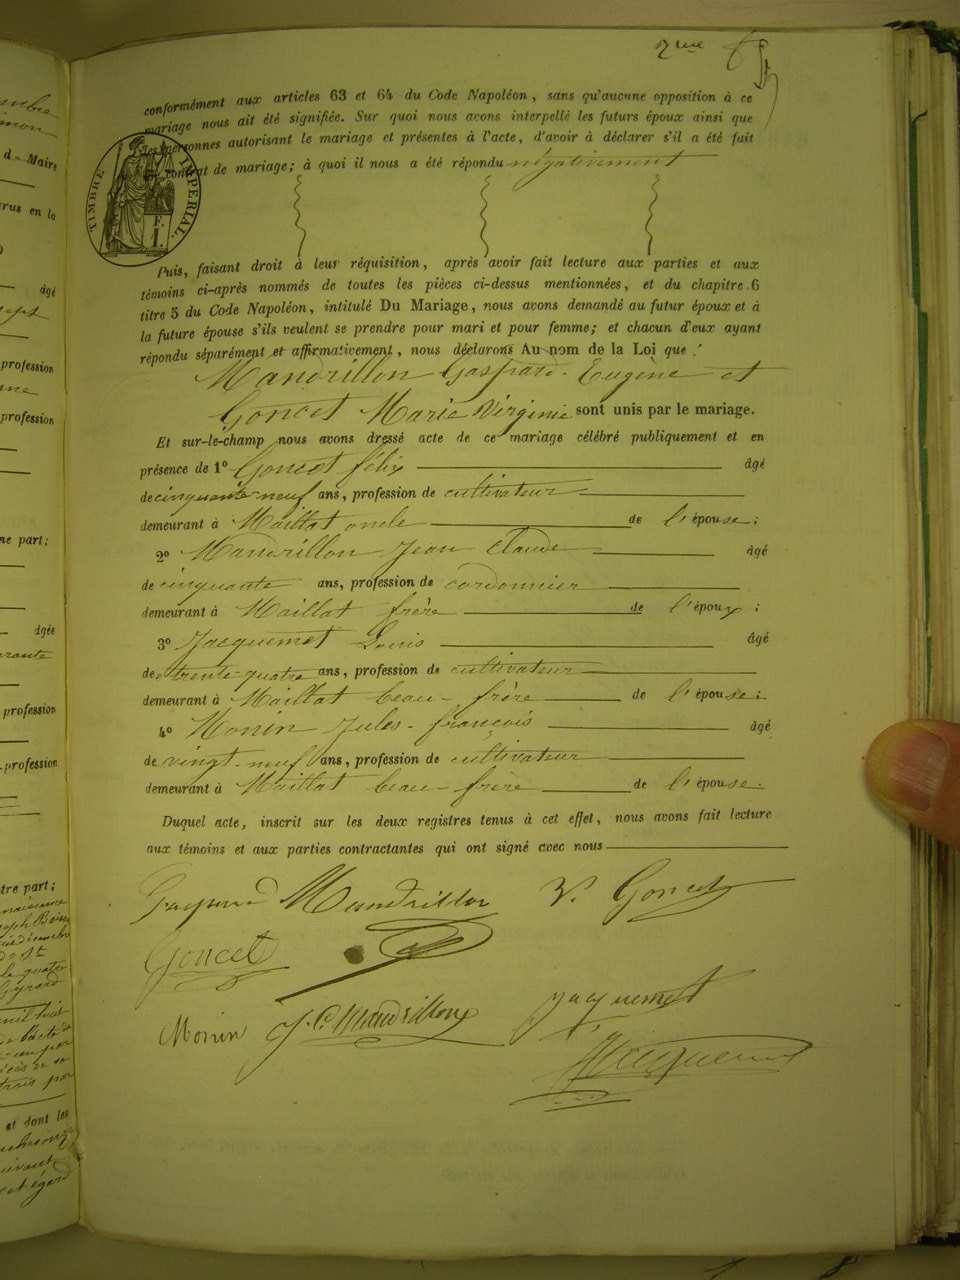 2me
conformément aux articles 63 et 64 du Code Napoléon, sans qu'aucune opposition à ce
mariage nous ait été signifiée. Sur quoi nous avons interpellé les futurs époux ainsi que
les personnes autorisant le mariage et présentes à l'acte, d'avoir à déclarer s'il a été fait
contrat de mariage; à quoi il nous a été répondu négativement
TIMBRE IMPERIAL
F.
1.
Puis, faisant droit à leur réquisition, après avoir fait lecture aux parties et aux
témoins ci-après nommés de toutes les pièces ci-dessus mentionnées, et du chapitre 6
titre 5 du Code Napoléon, intitulé Du Mariage, nous avons demandé au futur époux et à
la future épouse s'ils veulent se prendre pour mari et pour femme; et chacun d'eux ayant
répondu séparément et affirmativement, nous déclarons Au nom de la Loi que :
Mandrillon Gaspard Eugène et
Goncet Marie Virginie sont unis par le mariage.
Et sur-le-champ nous avons dressé acte de ce mariage célébré publiquement et en
présence de 1º Goncet félix âgé
de cinquante-neuf ans, profession de cultivateur
demeurant à Maillat oncle de l'épouse;
2º Mandrillon Jean Claude âgé
de cinquante ans, profession de cordonnier
demeurant à Maillat frère de l'époux;
3º Jacquemet Louis âgé
de trente-quatre ans, profession de cultivateur
demeurant à Maillat beau-frère de l'épouse;
4º Monin Jules-françois âgé
de vingt-neuf ans, profession de cultivateur
demeurant à Maillat beau-frère de l'épouse.
Duquel acte, inscrit sur les deux registres tenus à cet effet, nous avons fait lecture
aux témoins et aux parties contractantes qui ont signé avec nous
Mandrillon V. Goncet
Goncet
Monin J. C. Mandrillon Jacquemet